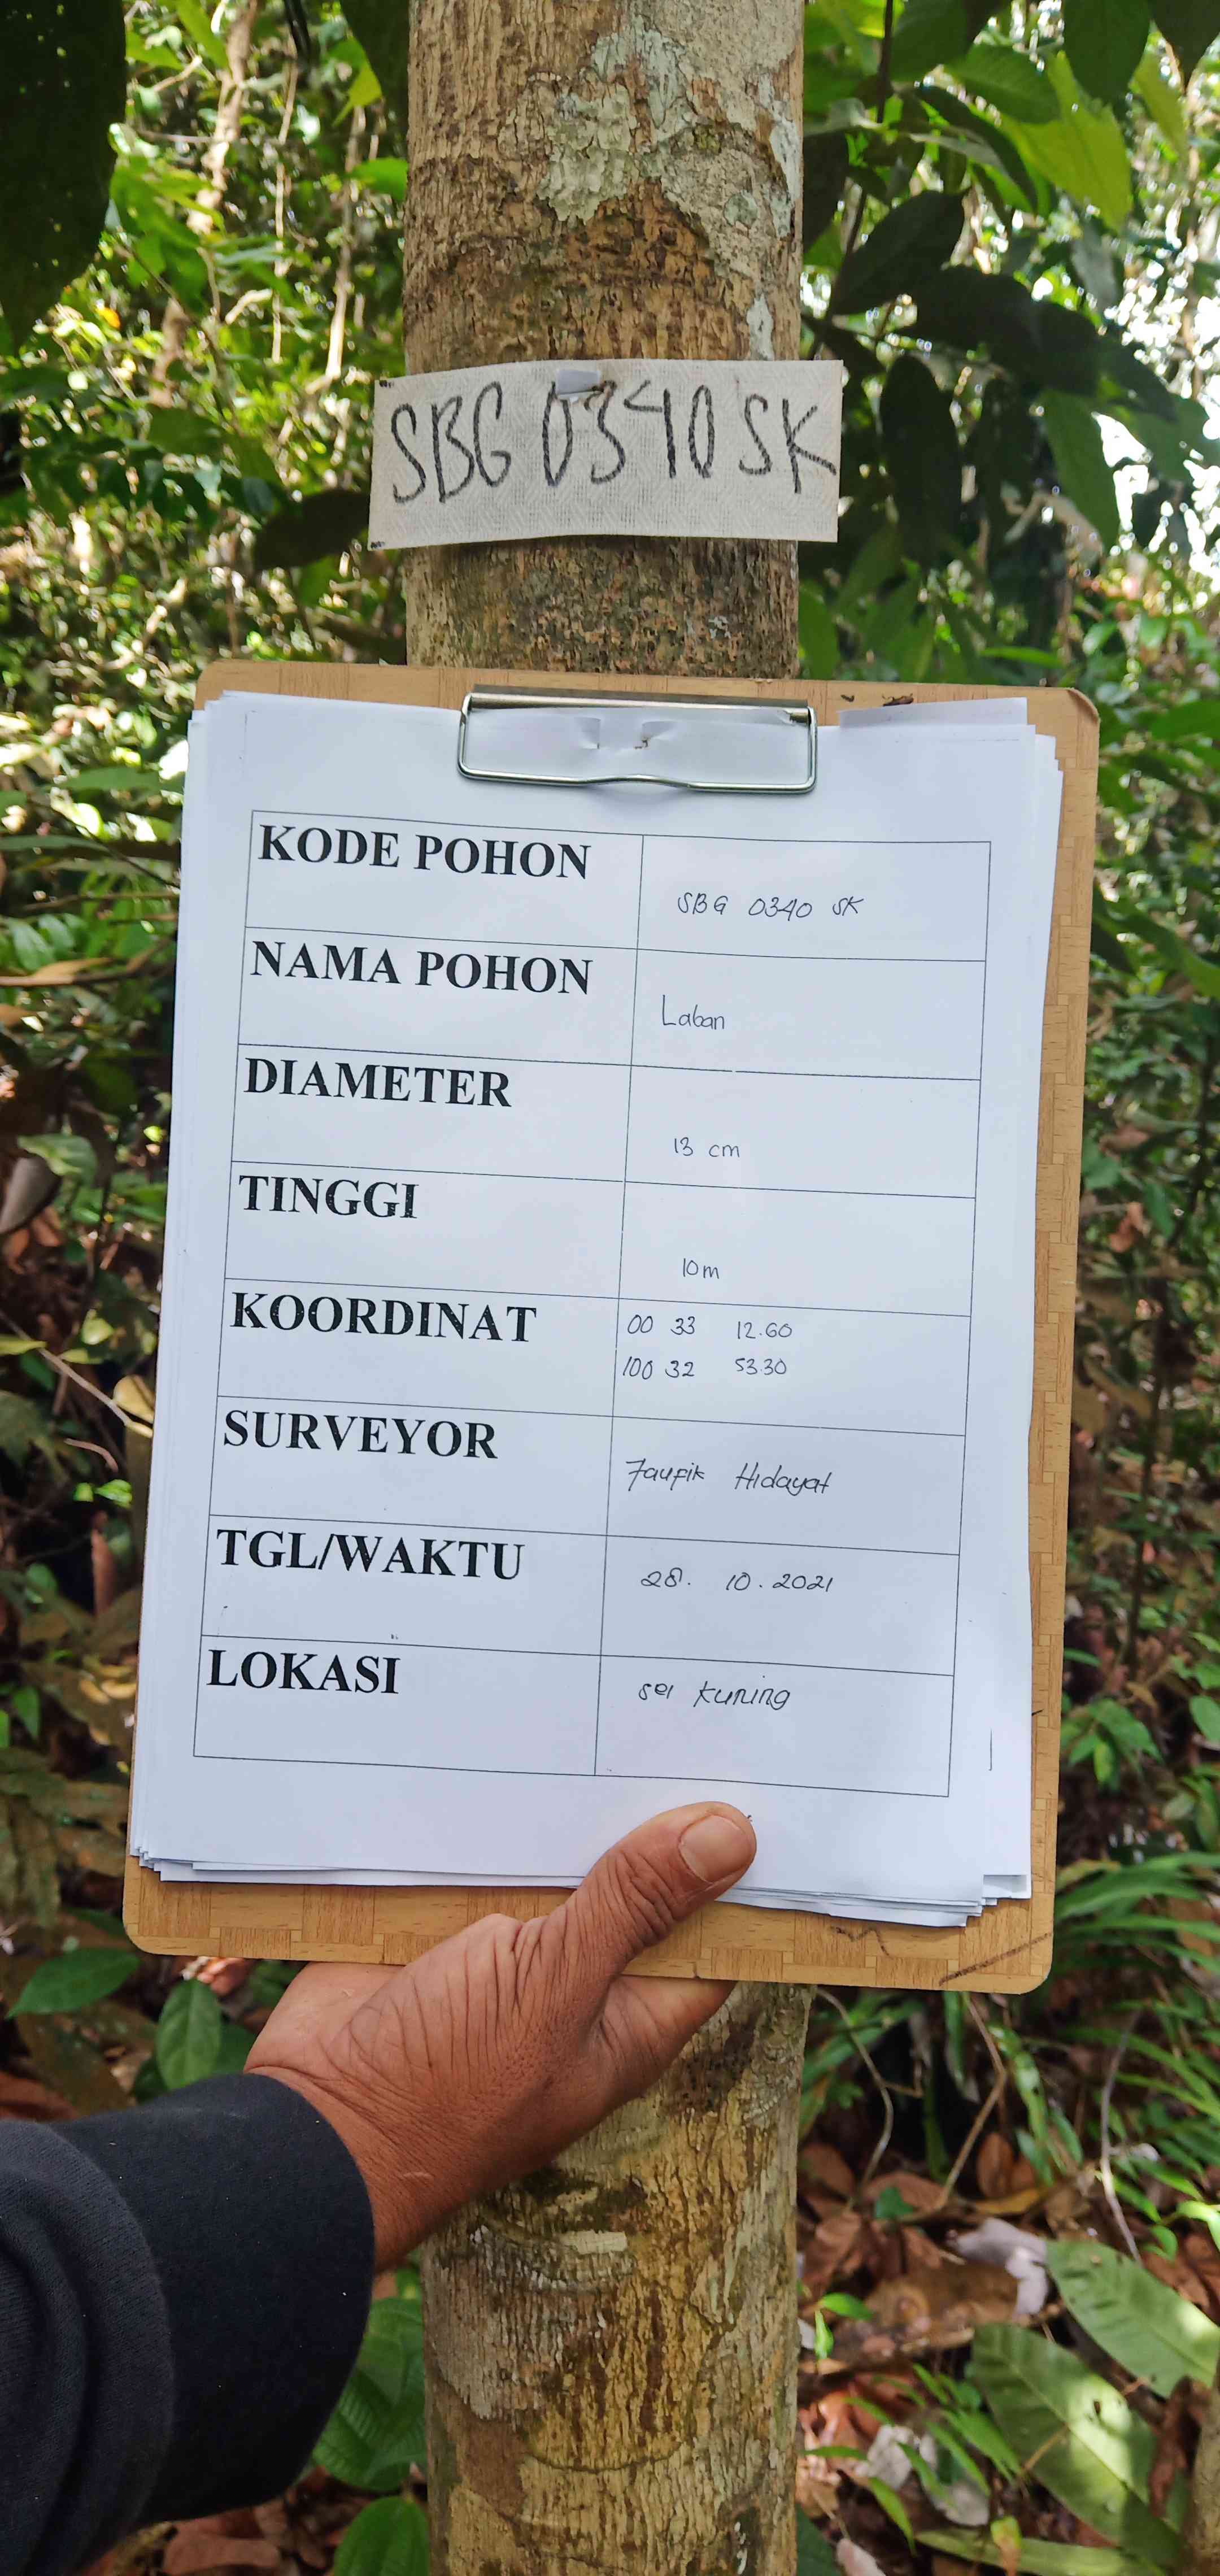 SBG 0340 SK
KODE POHON SBG 0340 SK
NAMA POHON Laban
DIAMETER 13 cm
TINGGI 10m
KOORDINAT 00 33 12.60
100 32 53.30
SURVEYOR Taufik Hidayat
TGL/WAKTU 28. 10. 2021
LOKASI sei Kuning